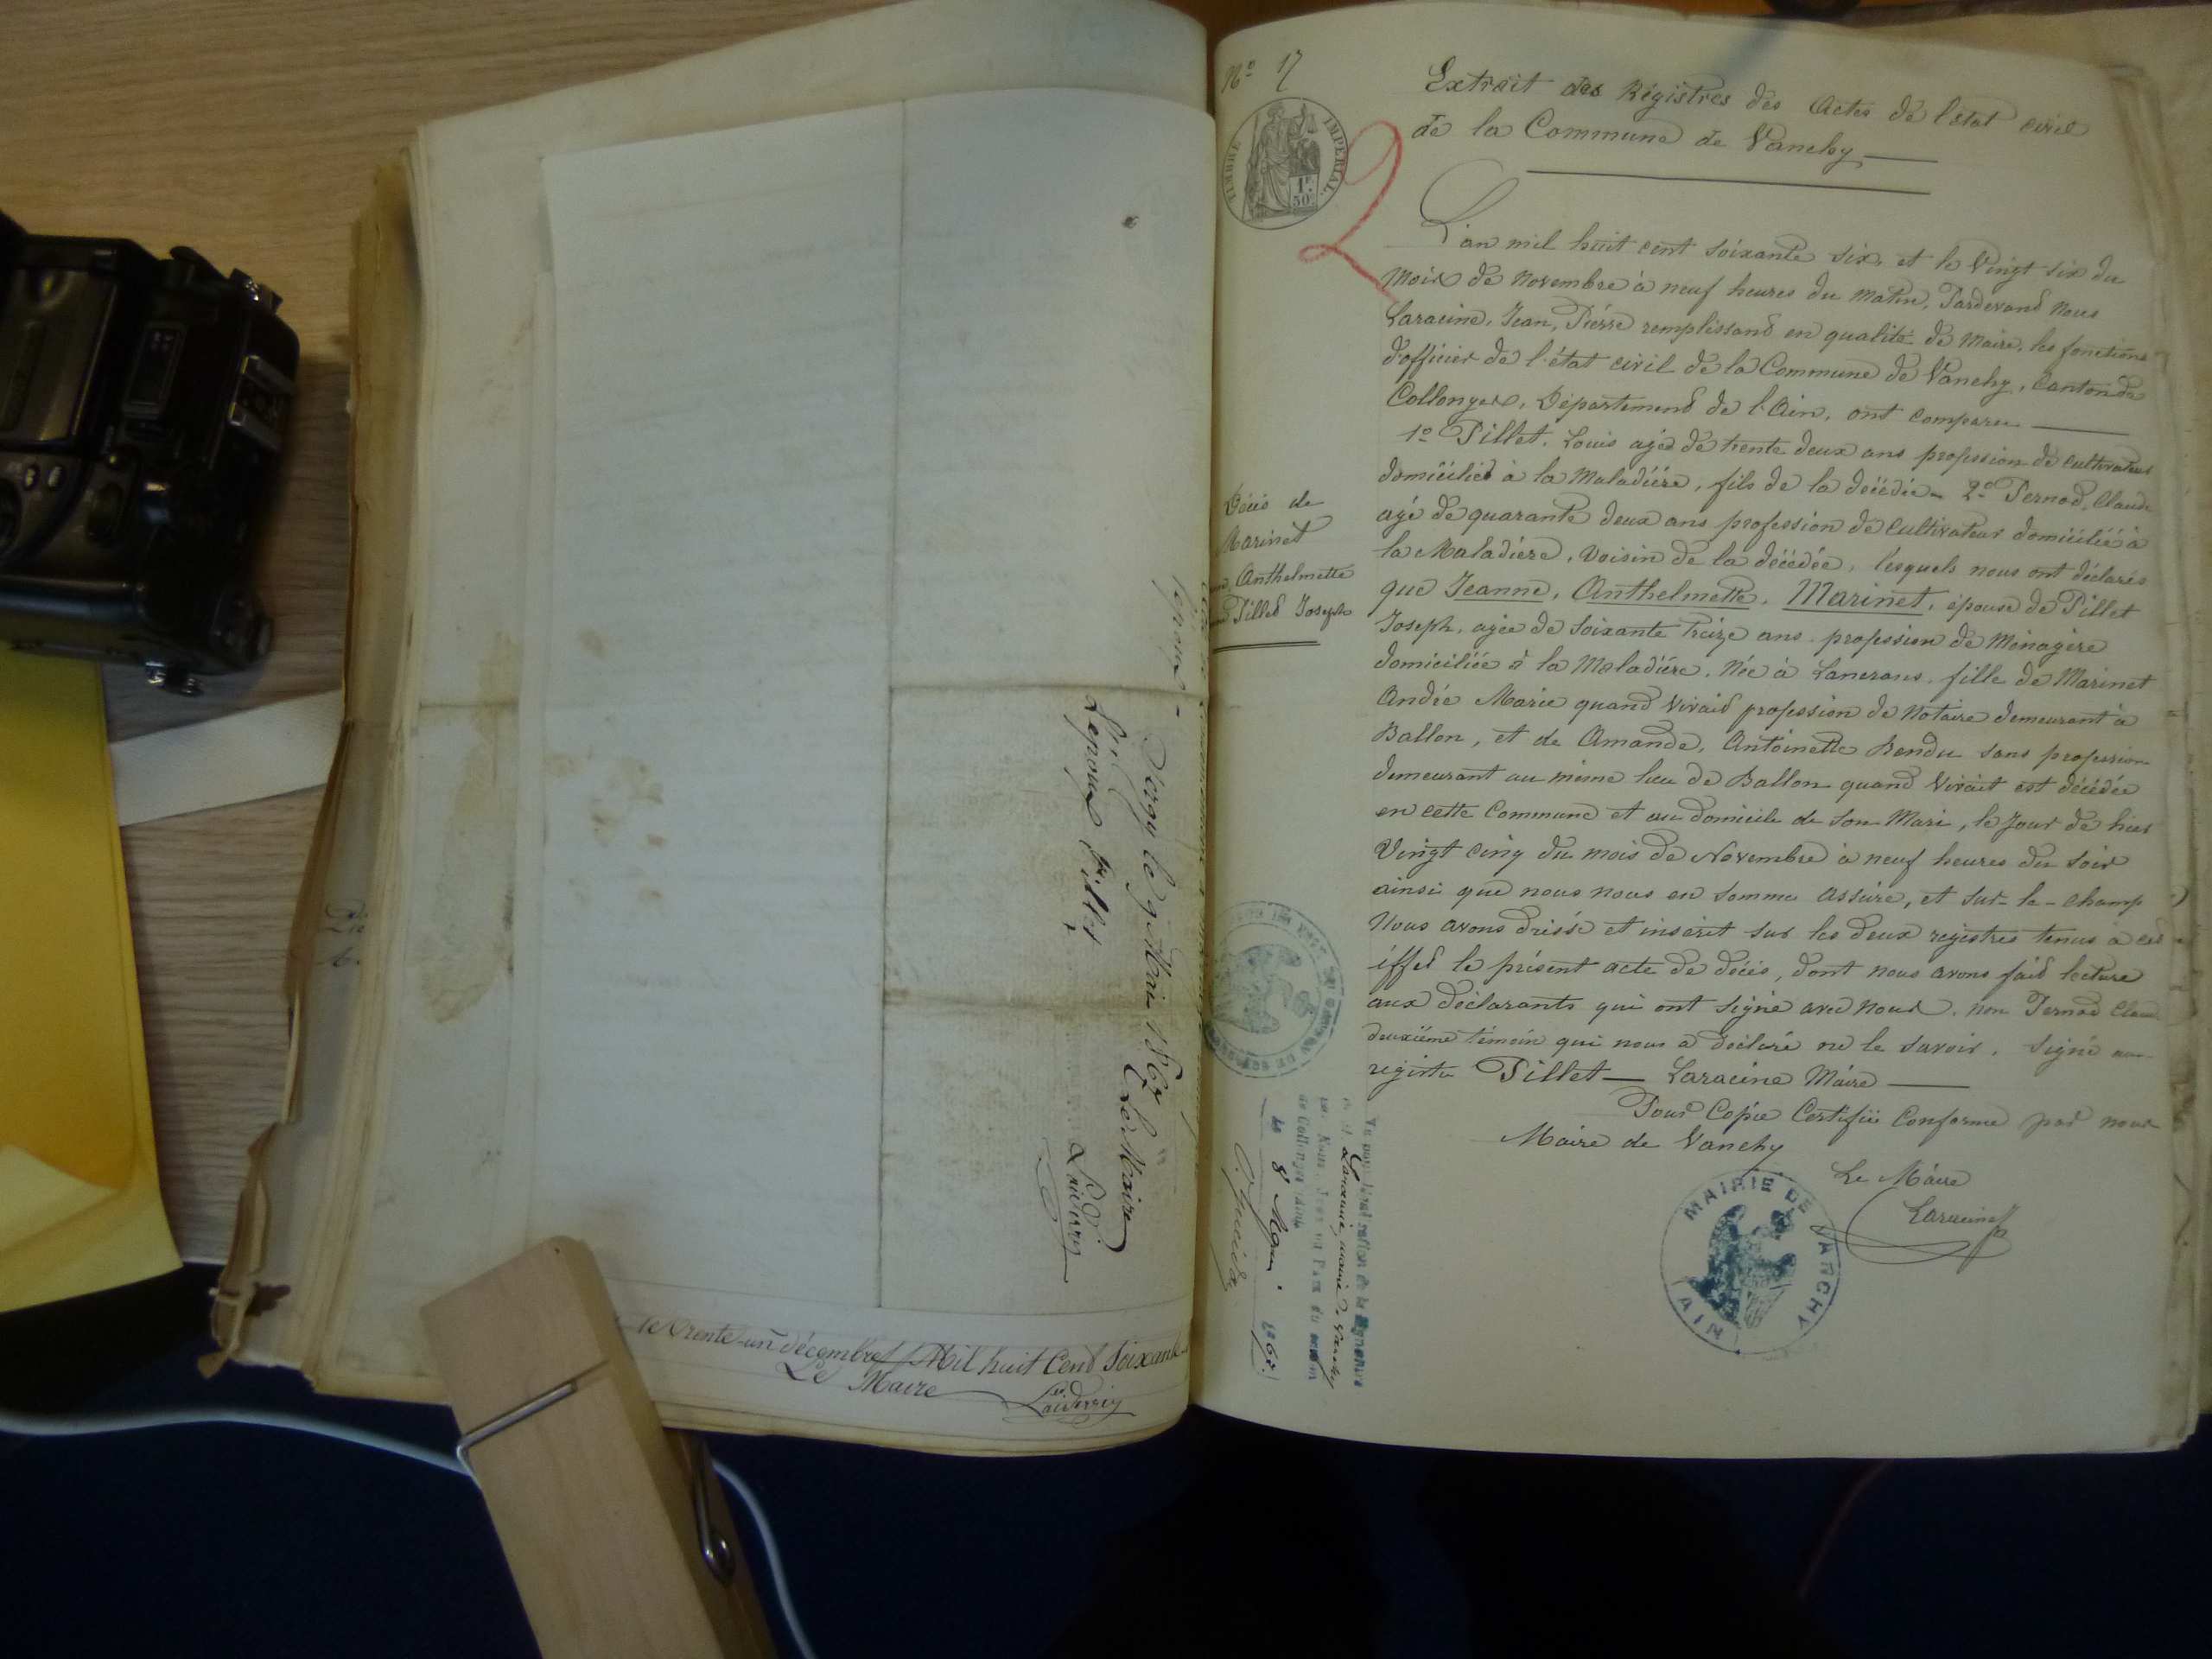 Légance le 9 Mai 1867
Le Maire
L'épouse Pillet
le trente-un décembre Mil huit Cent Soixante
Le Maire
Nº 17
TIMBRE IMPERIAL
1F 50c
2
Extrait des Régistres des Actes de l'état civil
de la Commune de Vanchy
L'an mil huit cent soixante six, et le Vingt six du
Mois de Novembre à neuf heures du matin, Pardevant Nous
Laracine, Jean, Piérre remplissant en qualité de Maire, les fonctions
d'officier de l'état civil de la Commune de Vanchy, Canton de
Collonges, Département de l'Ain, ont comparu
1º Pillet, Louis agé de trente deux ans profession de cultivateur
domicilié à la Maladiére, fils de la décédée 2º Pernod, Claude
agé de quarante deux ans profession de cultivateur domicilié à
la Maladiére, Voisin de la décédée, lesquels nous ont déclarés
que Jeanne, Anthelmette, Marinet, épouse de Pillet
Joseph, agée de soixante treize ans profession de Ménagère
domiciliée à la Maladiére, Née à Lancrans, fille de Marinet
André Marie quand Vivait profession de Notaire demeurant à
Ballon, et de Amande, Antoinette Bondu sans profession
demeurant au même lieu de Ballon quand Vivait est décédée
en cette Commune et au domicile de son Mari, le Jour de hier
Vingt cinq du mois de Novembre à neuf heures du soir
ainsi que nous nous en somme assuré, et sur-le-champ
Nous avons dréssé et inscrit sur les deux régistres tenus à cet
éffet le présent acte de décès, dont nous avons fait lecture
aux déclarants qui ont signé avec Nous, non Pernod Claude
deuxiéme témoin qui nous a déclaré ne le savoir. Signé au
régistre Pillet — Laracine Maire
Pour Copie Certifiée Conforme par nous
Maire de Vanchy
Le Maire
Laracine
MAIRIE DE VANCHY
AIN
Décès de
Marinet
Anthelmette
Pillet Joseph
Vu pour légalisation de la signature
Laracine, maire de Vanchy
par Nous, Juge de Paix du canton
de Collonges (Ain)
le 8 Mai 1867